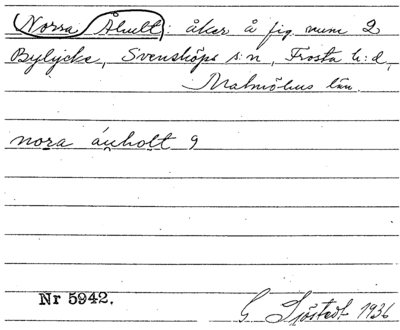 Norra Åhult: åker å fig. num 2
Bylycke, Svensköps s:n, Frosta h:d,
Malmöhus län.
nora áu̯holt 9
Nr 5942.
G Sjöstedt 1936